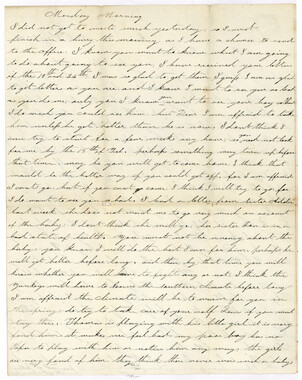 Monday Morning
I did not get to write much yesterday so I must
finish in a hurry this morning as I have a chance to send
to the office. I know you want to know what I am going
to do about going to see you. I have received your letters
of the 19th I was so glad to get them I am glad
to get letters as you are and I know I want to see you as bad
as you do me. only you I know want to see your boy
I do wish you could see him but Dear I am afraid to take
him unless he gets better than he is now. I don't think I
can try to start for a few weeks any how. so must not look
for me by the 15th of Feb. perhaps something may turn up before
that time. may be you will get to come home. I think that
would be the better way if you could get off. for I am afraid
I cant go but if you cant come I think I will try to go for
I do want to see you so bad. I had a letter from sister
last week. she does not want me to go very much on account
of the baby. I don't think she will go. her sister Ann is in
bad state of health. You must not be uneasy about the
baby. you know I will do the best I can for him. perhaps he
will get better before long. and then by that time you will
know whether you will have to fight any or not I think the
Yankeys will have to leave the southern climate before long
I am afraid the climate will be to warm for you in
the spring. do try to take care of your self even if you must
stay there. Thomas is playing with his little girl it is very
sweet now. it makes me feel bad my poor boy has no
Papa to play with him or notice him any way. the girls
are very fond of him they think there never was such a baby